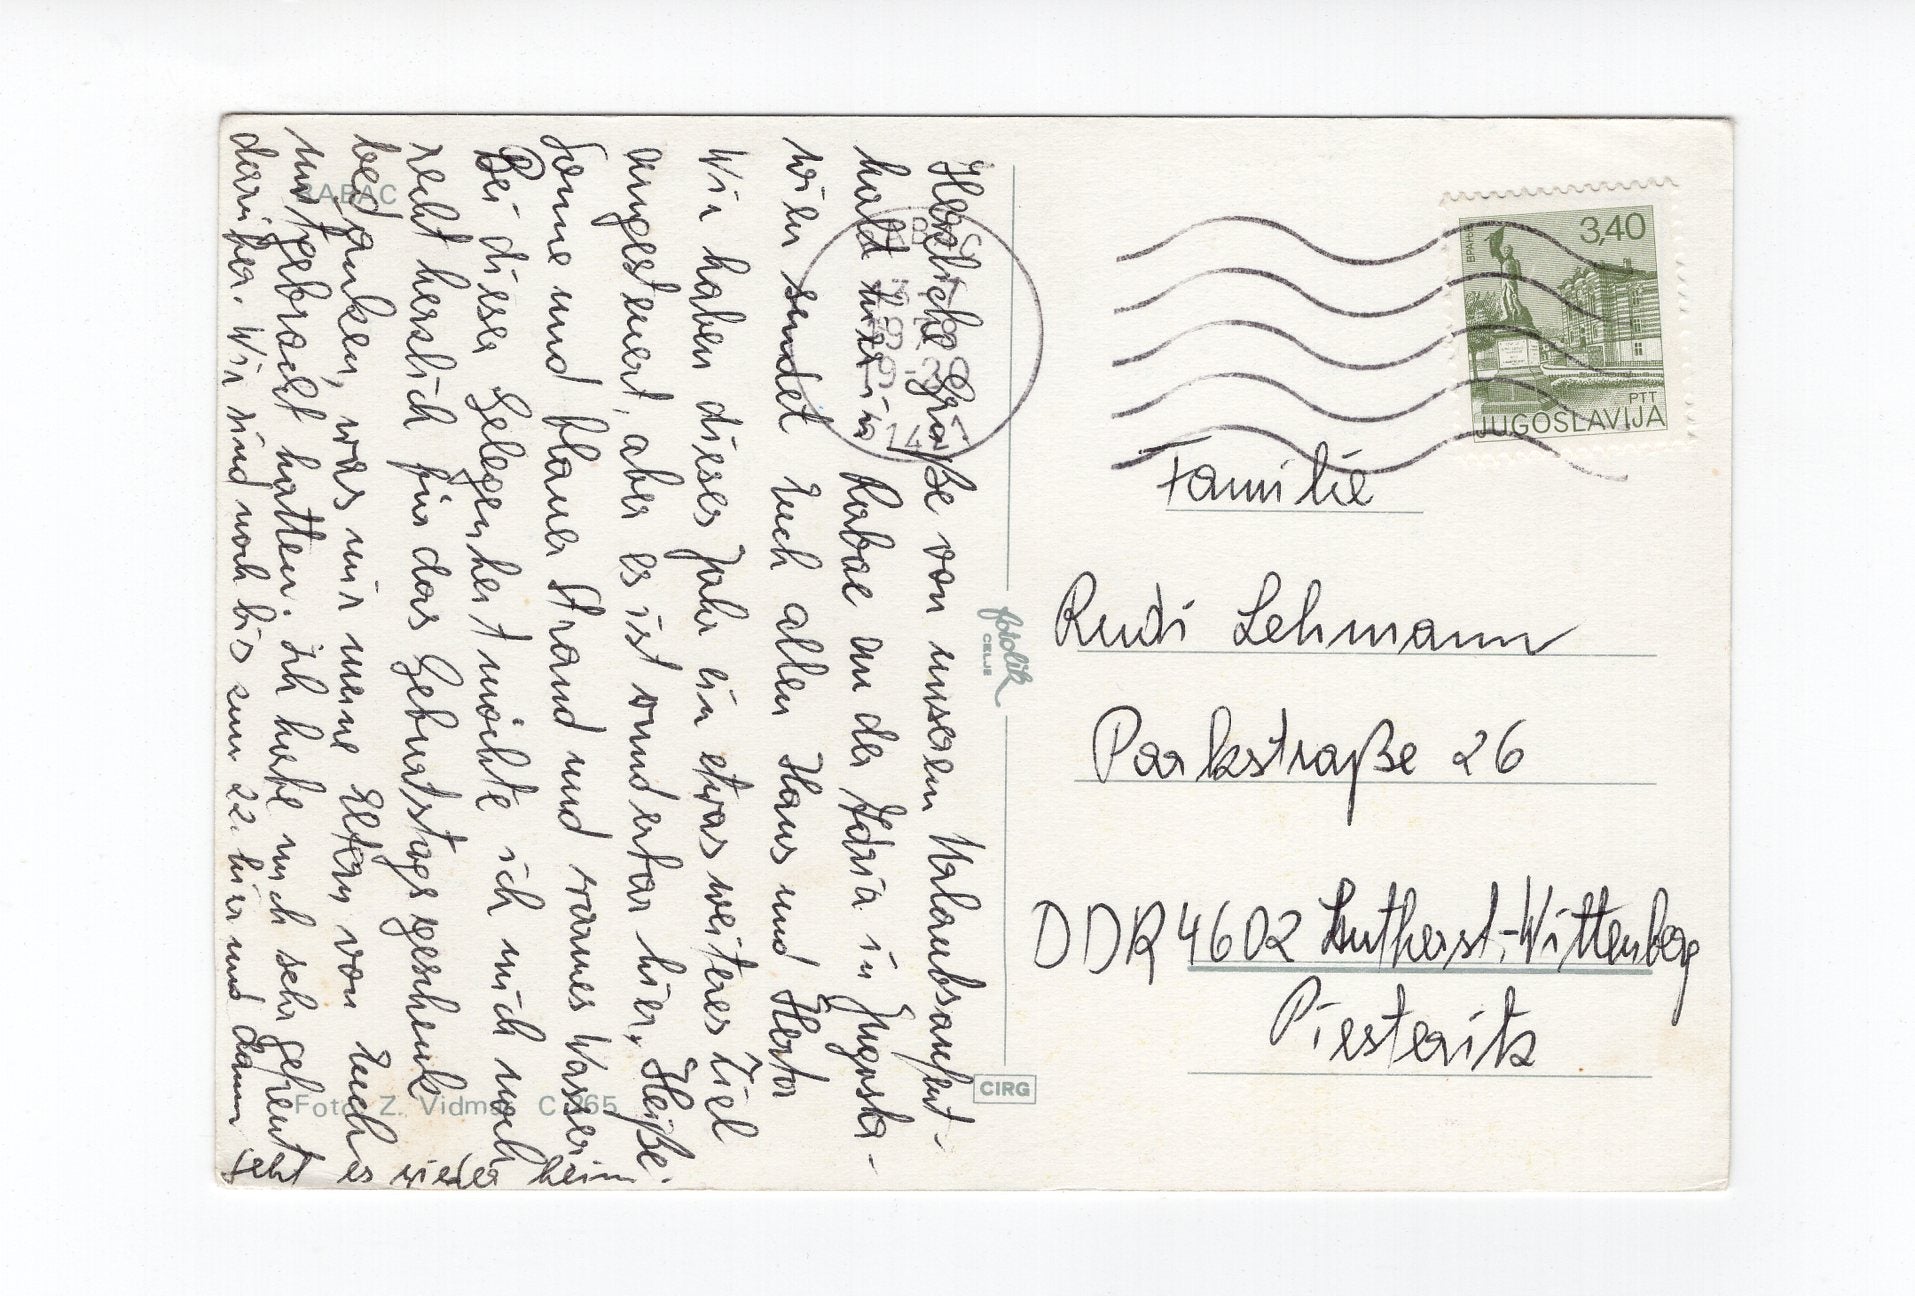 RABAC
Herzliche Grüße von unserem Urlaubsaufent-
halt hier in Rabac an der Adria in Jugosla-
wien sendet Euch allen Haus und Herta
Wir haben dieses Jahr ein etwas weiteres Ziel
angesteuert, aber es ist wunderbar hier, Heiße
Sonne und blauer Strand und warmes Wasser
Bei dieser Gelegenheit möchte ich mich noch
recht herzlich für das Geburtstagsgeschenk
bedanken, was mir meine Eltern von Euch
mitgebracht hatten. Ich habe mich sehr gefreut
darüber. Wir sind noch bis zum 22. hier und dann
geht es wieder heim.
Foto: Z. Vidmar C 265
fotolik
CELJE
CIRG
3,40
PTT
JUGOSLAVIJA
Familie
Rudi Lehmann
Parkstraße 26
DDR 4602 Lutherst.-Wittenberg
Piesteritz